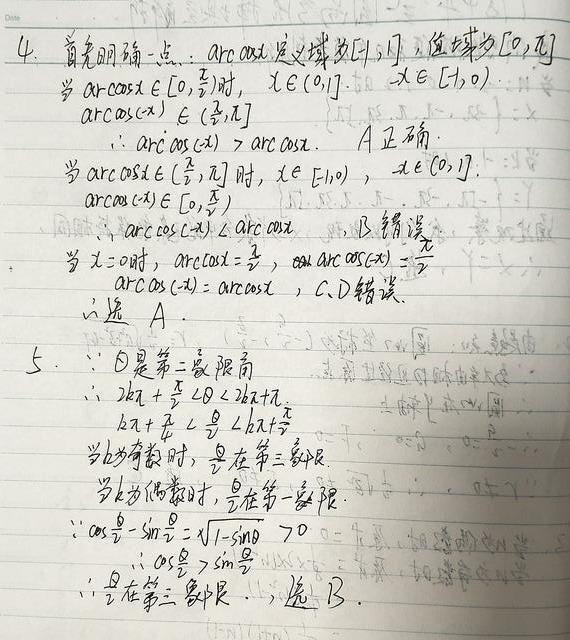 Date
4. 首先明确一点:arccosx定义域为[-1,1],值域为[0,π]
当arccosx∈[0,π/2)时, x∈(0,1]. -x∈[-1,0).
arccos(-x) ∈(π/2,π]
∴ arccos(-x) > arccosx. A正确.
当arccosx∈(π/2,π]时, x∈[-1,0), -x∈(0,1].
arccos(-x)∈[0,π/2)
∴ arccos(-x) < arccosx , B错误
当x=0时, arccosx=π/2, arccos(-x)=π/2
arccos(-x)=arccosx , C,D错误.
∴选 A.
5. ∵θ是第二象限角
∴ 2kπ+π/2<θ<2kπ+π.
kπ+π/4<θ/2<kπ+π/2
当k为奇数时, θ/2在第三象限.
当k为偶数时, θ/2在第一象限.
∵cosθ/2-sinθ/2=√1-sinθ >0
∴cosθ/2>sinθ/2
∴θ/2在第三象限. , 选B.